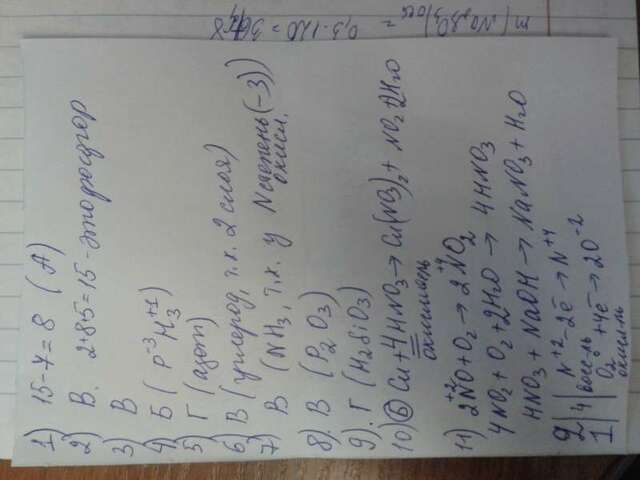 1) 15-7=8 (А)
2) В. 2+8+5=15-это фосфор
3) В
4) Б (P⁻³H₃⁺¹)
5) Г (азот)
6) В (углерод, т.к. 2 слоя)
7) В (NH₃, т.к. у N степень (-3))
окисл.
8). В (P₂O₃)
9). Г (H₂SiO₃)
10) Б Cu+4HNO₃→Cu(NO₃)₂+ NO₂ 2H₂O
окислитель
11) 2N⁺²O+O₂→2N⁺⁴O₂
4NO₂+O₂+2H₂O→4HNO₃
HNO₃+NaOH→NaNO₃+H₂O
2|4|вос-ль N⁺²-2e⁻→N⁺⁴
1| | O₂+4e⁻→2O⁻²
окисл-ль
m(Na₂SO₃) = 0,3·120=36г